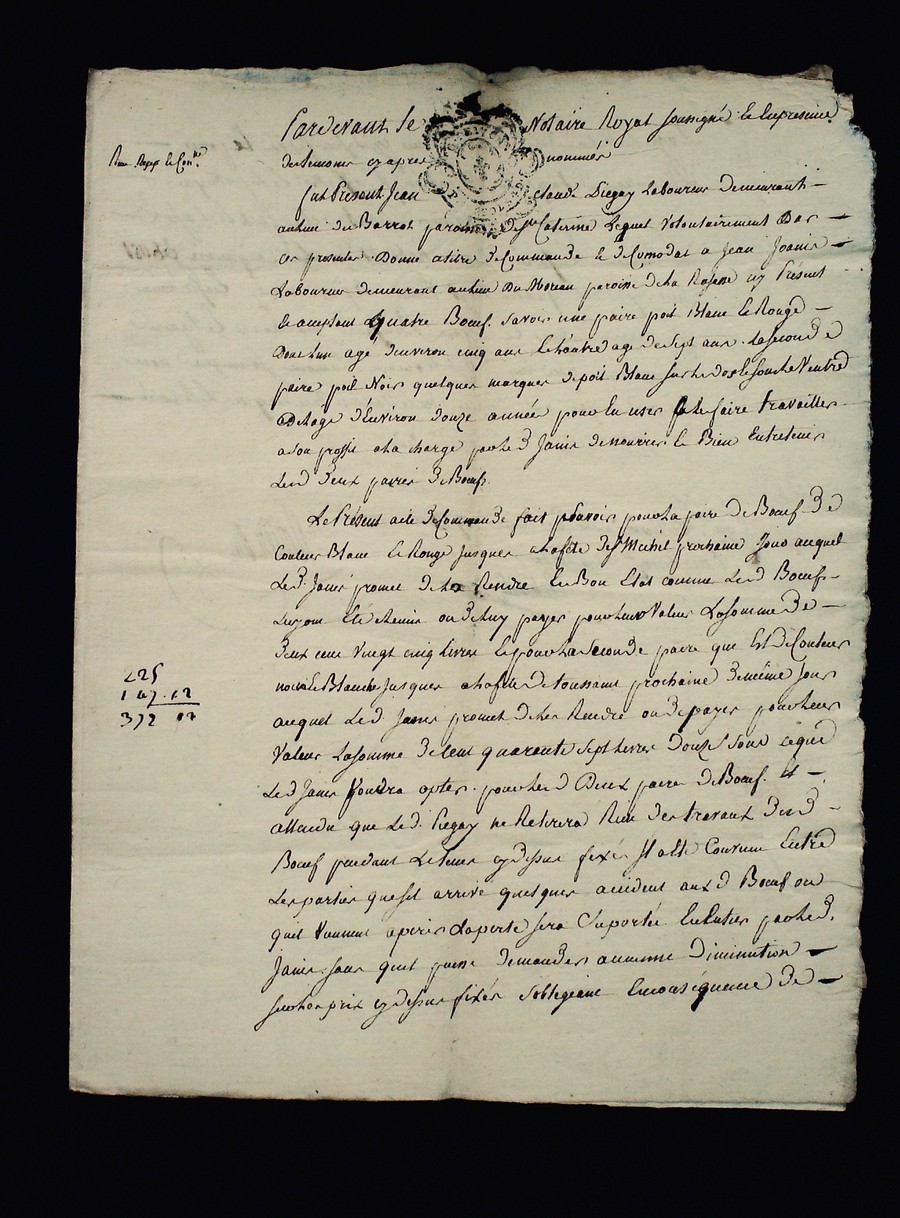 Pardevant le Notaire Royal soussigné Et En presence
des temoins cy apres nommés
fut Present Jean Claude Piegay Laboureur demeurant
au lieu du Barrot paroisse de Ste Caterine Lequel volontairement Par
ces presentes Donne a titre de Commande Et de Comodat a Jean Janis
Laboureur demeurant au lieu du Moreau paroisse de la Rajasse icy Présent
Et acceptant Quatre Bœufs savoir une paire poil Blanc Et Rouge
Dont L'un agé d'environ cinq ans Et L'autre agé de sept ans La seconde
paire poil Noir quelques marques de poil Blanc sur Le dos Et sous Le Ventre
de L'age d'Environ douze année pour En user Et Le faire travailler
a son proffit a La charge par Led Janis de nourrir Et Bien Entretenir
Lesd deux paires de Bœufs
Le Présent acte de Commande fait savoir pour La paire de Bœuf de
Couleur Blanc Et Rouge Jusques a La fete de St Michel prochaine Jour auquel
Led Janis promet de Les Rendre En Bon Etat comme Lesd Bœufs
Luy ont Eté Remis ou de Luy payer pour Leur Valeur La somme de
deux cent Vingt cinq Livres Et pour La Seconde paire que Est de Couleur
noir Et Blanche Jusques a La fete de toussaint prochaine de même Jour
auquel Led Janis promet de Les Rendre ou de payer pour Leur
Valeur La somme de Cent quarente sept Livres douze Sous ce que
Led Janis Voudra opter pour Lesd Deux paire de Bœuf Et
attendu que Led Piegay ne Retirera Rien des travaux desd
Bœuf pendant Le tems cy dessus fixés Il a Eté Convenu Entre
Les parties que sil arrive quelques accident aux d Bœuf ou
quil Vinssent a perir La perte sera Suportée En Entier par Led
Janis sans quil puisse demander aucunne Diminution
sur Les prix cy dessus fixés soblegeant En conséquence de
225
147 . 12
372 12